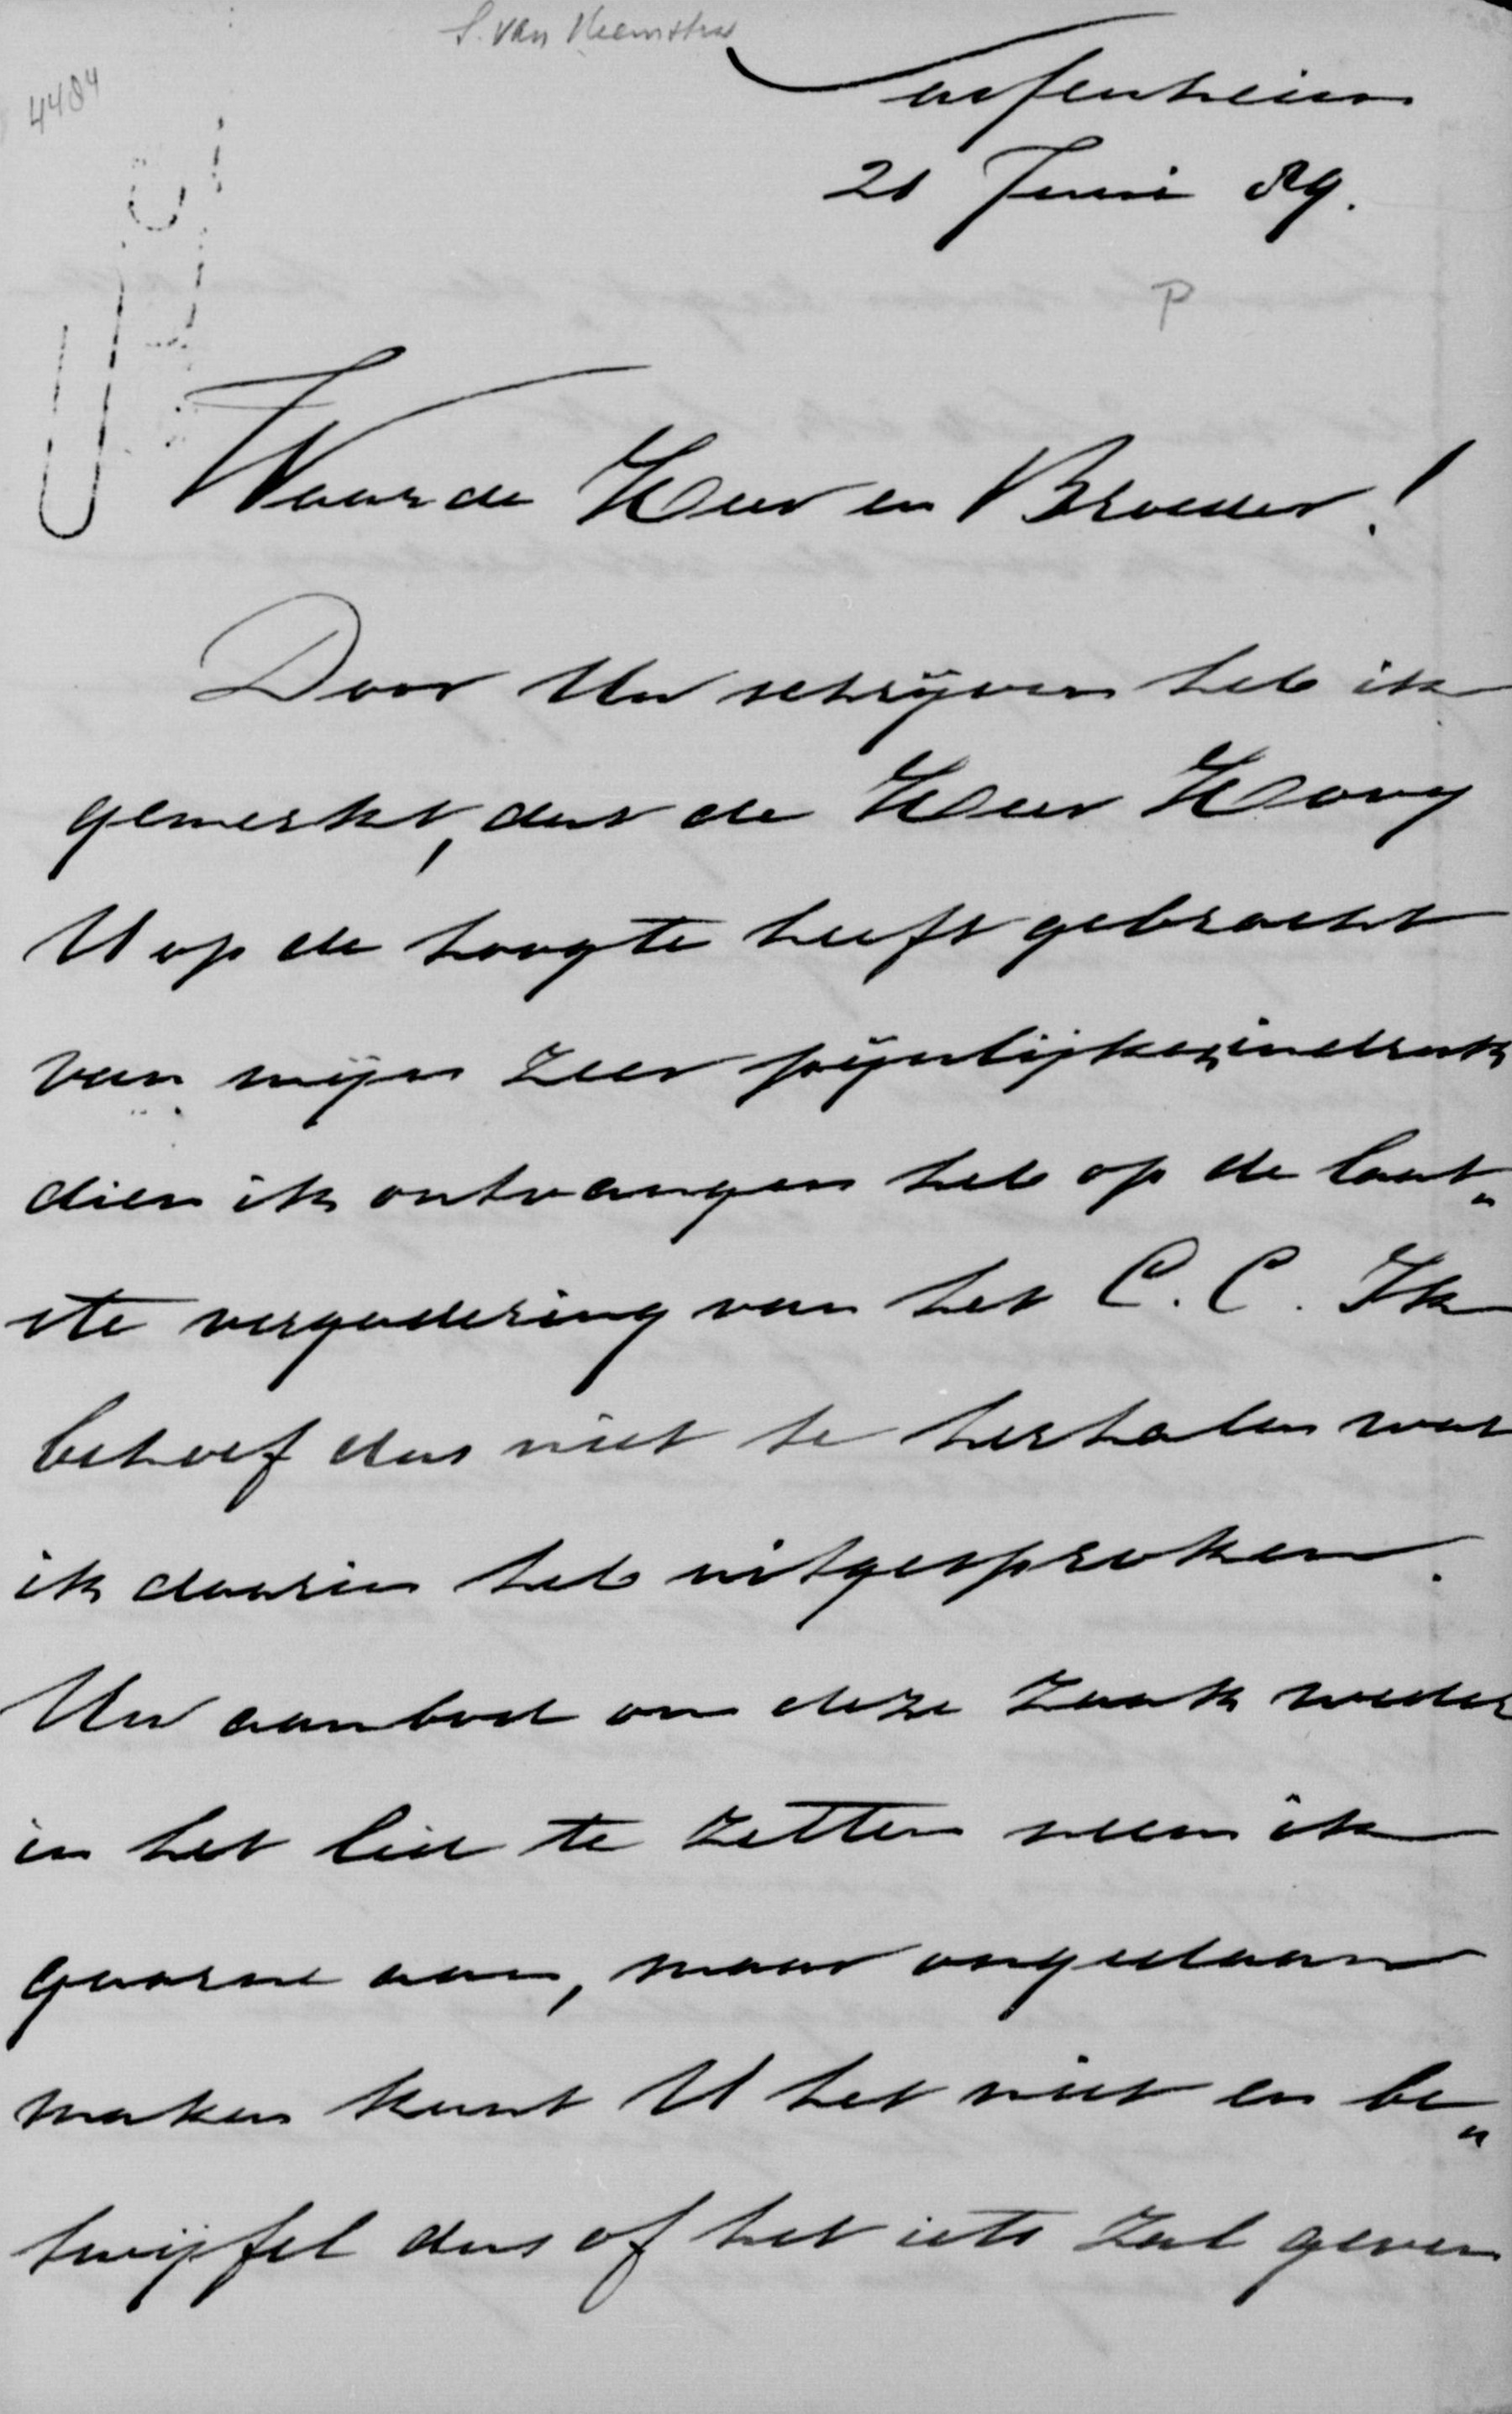 S. van Heemstra
4484
Sassenheim
21 Juni 89.
P
Waarde Heer en Broeder!
Door Uw schrijven heb ik
gemerkt, dat de Heer Hovy
U op de hoogte heeft gebracht
van mijn zeer pijnlijken indruk
dien ik ontvangen heb op de laat„
ste vergadering van het C. C. Ik
behoef dus niet te herhalen wat
ik daarin heb uitgesproken.
Uw aanbod om deze zaak weder
in het lid te zetten neem ik
gaarne aan, maar ongedaan
maken kunt U het niet en be„
twijfel dus of het iets zal geven